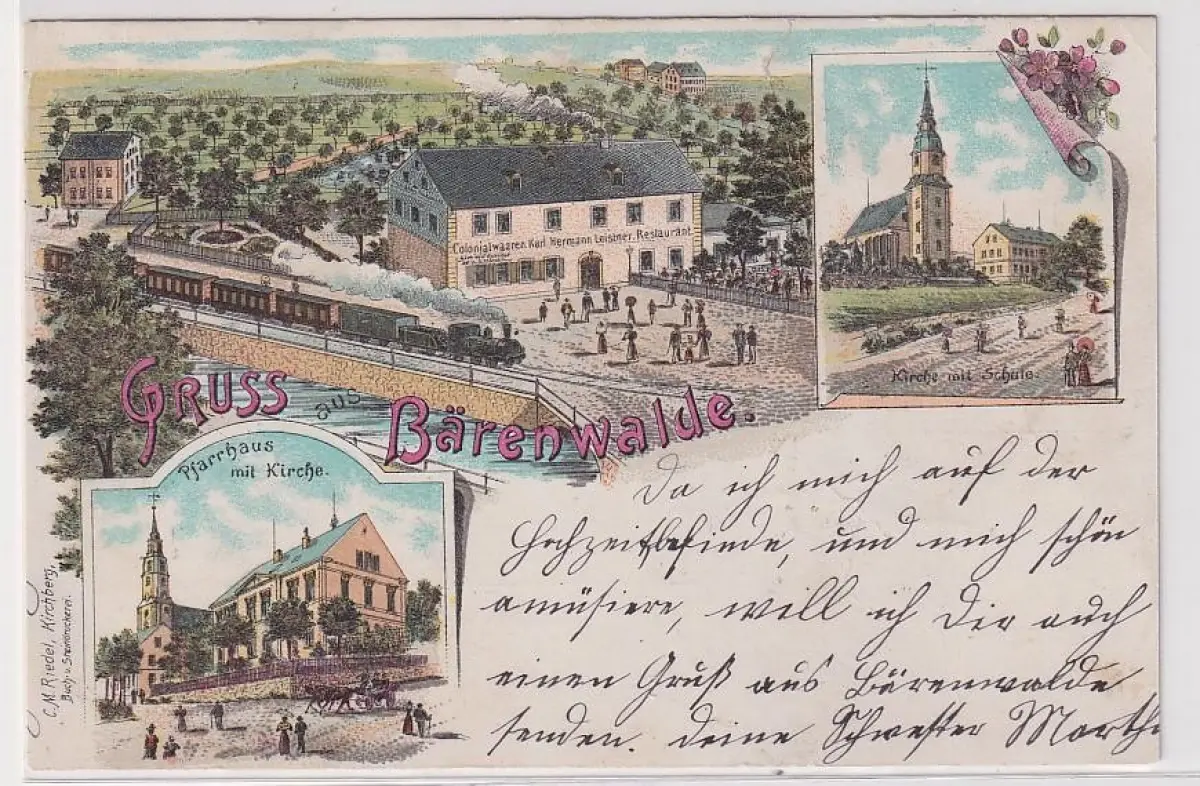 Colonialwaaren. Karl Hermann Leistner. Restaurant.
Kirche mit Schule.
GRUSS
aus
Bärenwalde.
Pfarrhaus
mit Kirche.
C. M. Riedel, Kirchberg,
Buch- u. Steindruckerei.
Da ich mich auf der
Hochzeit befinde, und mich schön
amüsiere, will ich Dir auch
einen Gruß aus Bärenwalde
senden. deine Schwester Martha